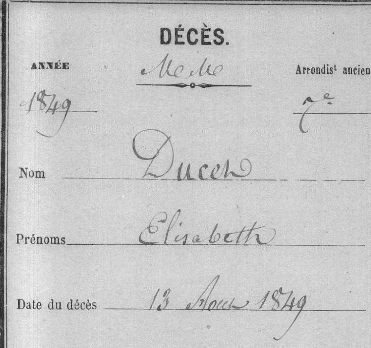 DÉCÈS.
ANNÉE
Arrondist ancien
1849
7e
Nom Ducen
Prénoms Elisabeth
Date du décès 13 Aout 1849